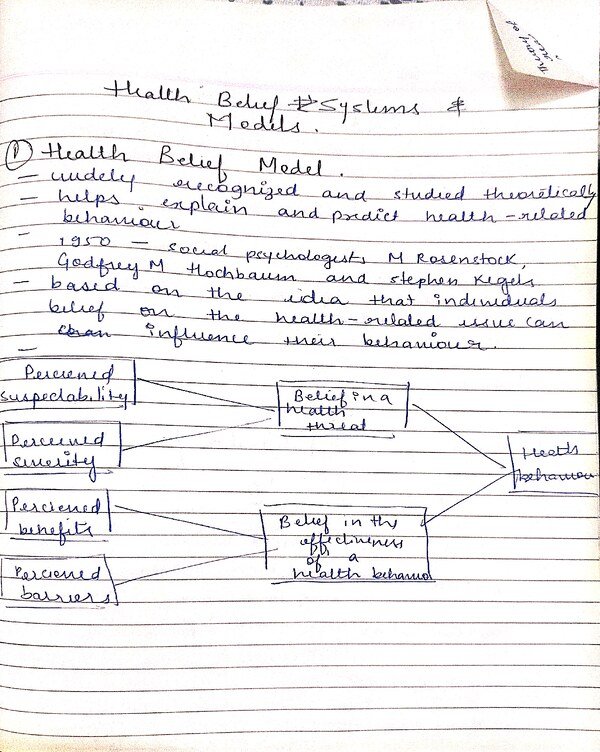 Theory of
Health Belief Systems &
Models.
① Health Belief Model.
– widely recognized and studied theoretically
– helps explain and predict health-related
behaviour
– 1950 – social psychologists M Rosenstock,
Godfrey M Hochbaum and Stephen Kegels
– based on the idea that individuals
belief on the health-related issue can
influence their behaviour.
–
Perceived
suspectability
Belief in a
health
threat
Perceived
severity
Health
behaviou
Perceived
benefits
Belief in the
effectiveness
of a
health behavio
Perceived
barriers